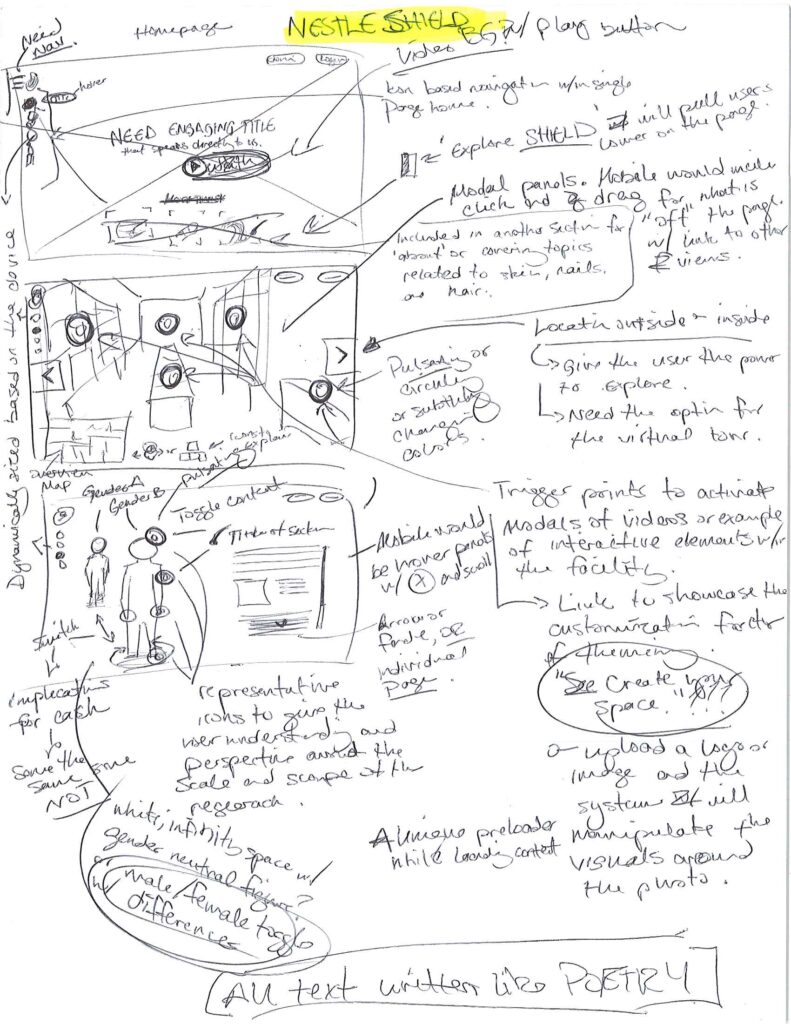 Homepage
NESTLE SHIELD
Need
Nav.
Video BG? w/ play button
hover
Login
Icon based navigation w/in single
page house.
NEED ENGAGING TITLE
that speaks directly to us.
Watch
"Explore SHIELD" will pull users
lower on the page.
Modal panels. Mobile would include
click and drag for what is
"off" the page.
w/ link to other
views.
Included in another section for
'about' or covering topics
related to skin, nails,
and hair.
Dynamically sized based on the device
Location outside - inside
Give the user the power
to explore.
Need the option for
the virtual tour.
Pulsating or
circule
or
change
colors.
overview
Map
or
icons to
explain
pulsating
Gender A
Gender B
Toggle content
Title of section
Mobile would
be hover panels
w/ X and scroll
Arrow or
fade, OR
individual
page.
Trigger points to activate
Modals of videos or example
of interactive elements w/in
the facility.
Link to showcase the
customization factor
of themeing.
"See Create your
space."
or upload a logo or
image and the
system will
manipulate the
visuals around
the photo.
Switch
implications
for each
some the
same some
NOT
representative
icons to give the
user understanding and
perspective around the
scale and scope of the
research.
white, infinity space w/
gender neutral figure?
or
w/ male/female toggle
differences
A unique preloader
while loading content
All text written like POETRY